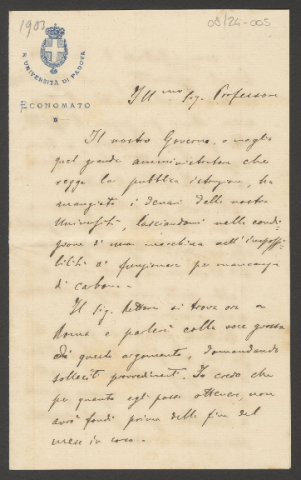 1902
08/24-005
R. UNIVERSITÀ DI PADOVA
ECONOMATO
Ill.mo Sig. Professore
Il nostro Governo, o meglio
quel grande amministratore che
regge la pubblica istruzione, ha
mangiato i denari della nostra
Università, lasciandoci nelle condi-
zioni di una macchina nell'impossi-
bilità di funzionare per mancanza
di carbone.
Il Sig. Rettore si trova ora a
Roma e parlerà colla voce grossa
di questo argomento, domandando
solleciti provvedimenti. Io credo che
per quanto egli possa ottenere, non
avrò fondi prima della fine del
mese in corso.